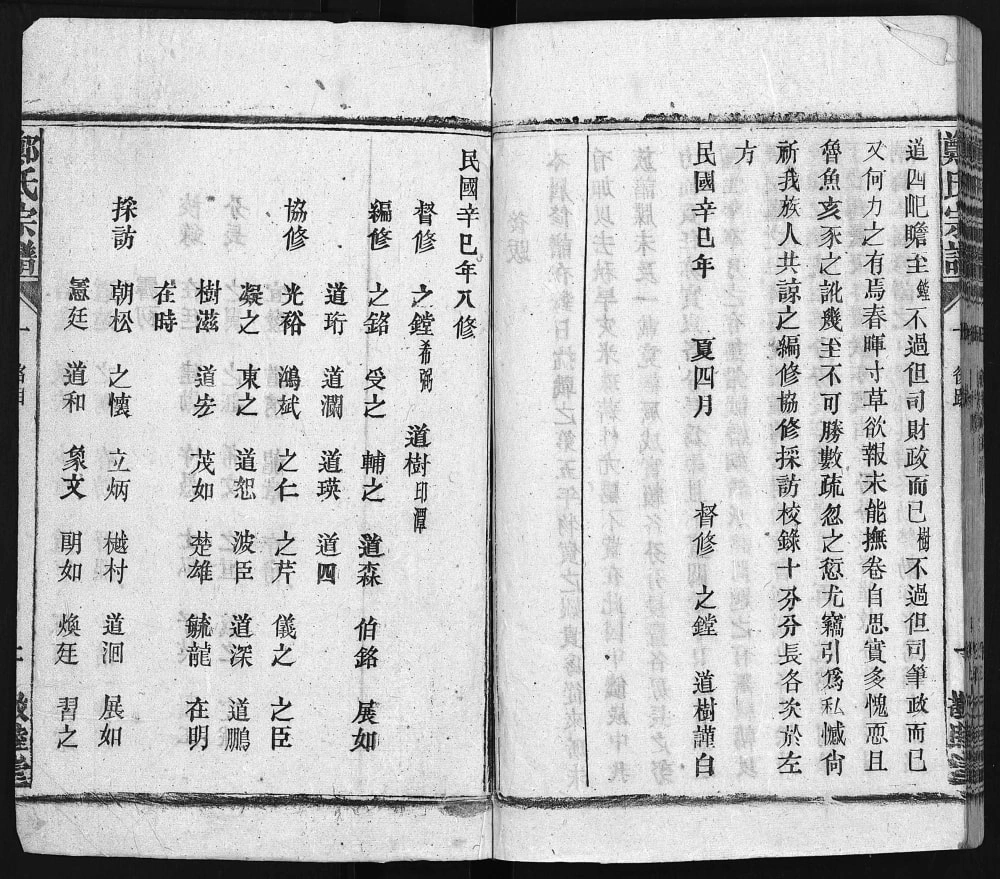 鄭氏宗譜
道四屺瞻至鏜不過但司財政而已樹不過但司筆政而已
又何力之有焉春暉寸草欲報未能撫卷自思實多愧恧且
魯魚亥豕之訛幾至不可勝數疏忽之愆尤竊引爲私憾尙
祈我族人共諒之編修協修採訪校錄十分分長各次於左
方
民國辛巳年 夏四月 督修 之鏜 道樹謹白
民國辛巳年八修
督修 之鏜希弼 道樹印潭
編修 之銘 受之 輔之 道森 伯銘 展如
道珩 道瀾 道瑛 道四
協修 光裕 鴻斌 之仁 之芹 儀之 之臣
凝之 東之 道恕 波臣 道深 道鵬
樹滋 道宏 茂如 楚雄 毓龍 在明
在時
採訪 朝松 之懷 立炳 樾村 道洄 展如
憲廷 道和 象文 明如 煥廷 習之
鄭氏宗譜